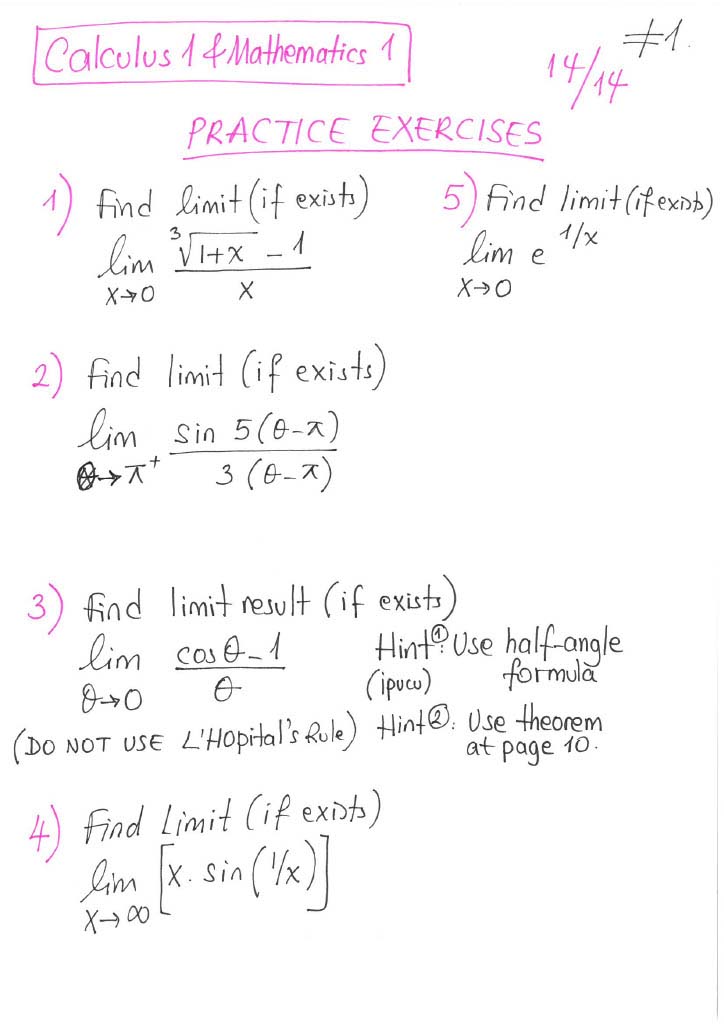 Calculus 1 & Mathematics 1
14/14
#1.
PRACTICE EXERCISES
1) Find limit (if exists)
lim x→0 (∛(1+x) - 1)/x
5) Find limit (if exists)
lim x→0 e^(1/x)
2) Find limit (if exists)
lim θ→π⁺ (sin 5(θ-π))/(3(θ-π))
3) Find limit result (if exists)
lim θ→0 (cos θ - 1)/θ
Hint①: Use half-angle
(ipucu) formula
(DO NOT USE L'Hopital's Rule)
Hint②: Use theorem
at page 10.
4) Find Limit (if exists)
lim x→∞ [x . sin(1/x)]